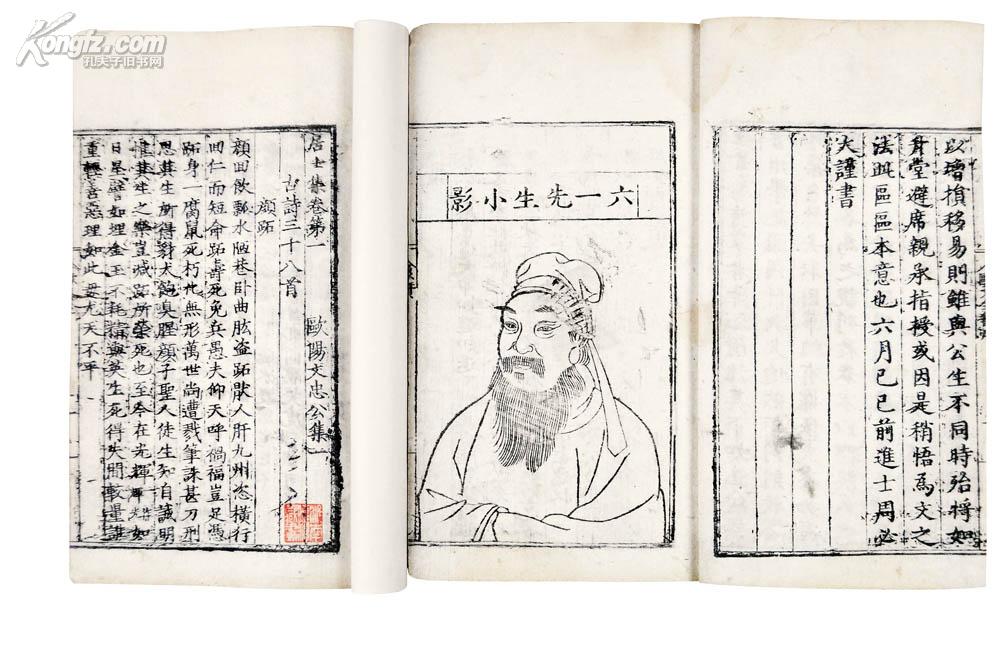 Kongfz.com
孔夫子旧书网
以增損移易則雖與公生不同時殆將如
身堂避席親承指授或因是稍悟為文之
法此區區本意也六月己巳前進士周必
大謹書
六一先生小影
居士集卷第一 歐陽文忠公集一
古詩三十八首
顏跖
顏回飲瓢水陋巷卧曲肱盜跖猒人肝九州恣橫行
回仁而短命跖壽死免兵愚夫仰天呼禍福豈足憑
跖身一腐鼠死朽化無形萬世尚遭戮筆誅甚刀刑
思其生所得豺犬飽臭腥顏子聖人徒生知自誠明
惟其生之樂豈減跖所榮死也至今在光輝如
日星譬如埋金玉不耗精與英生死得失間較量誰
重輕善惡理如此毋尤天不平